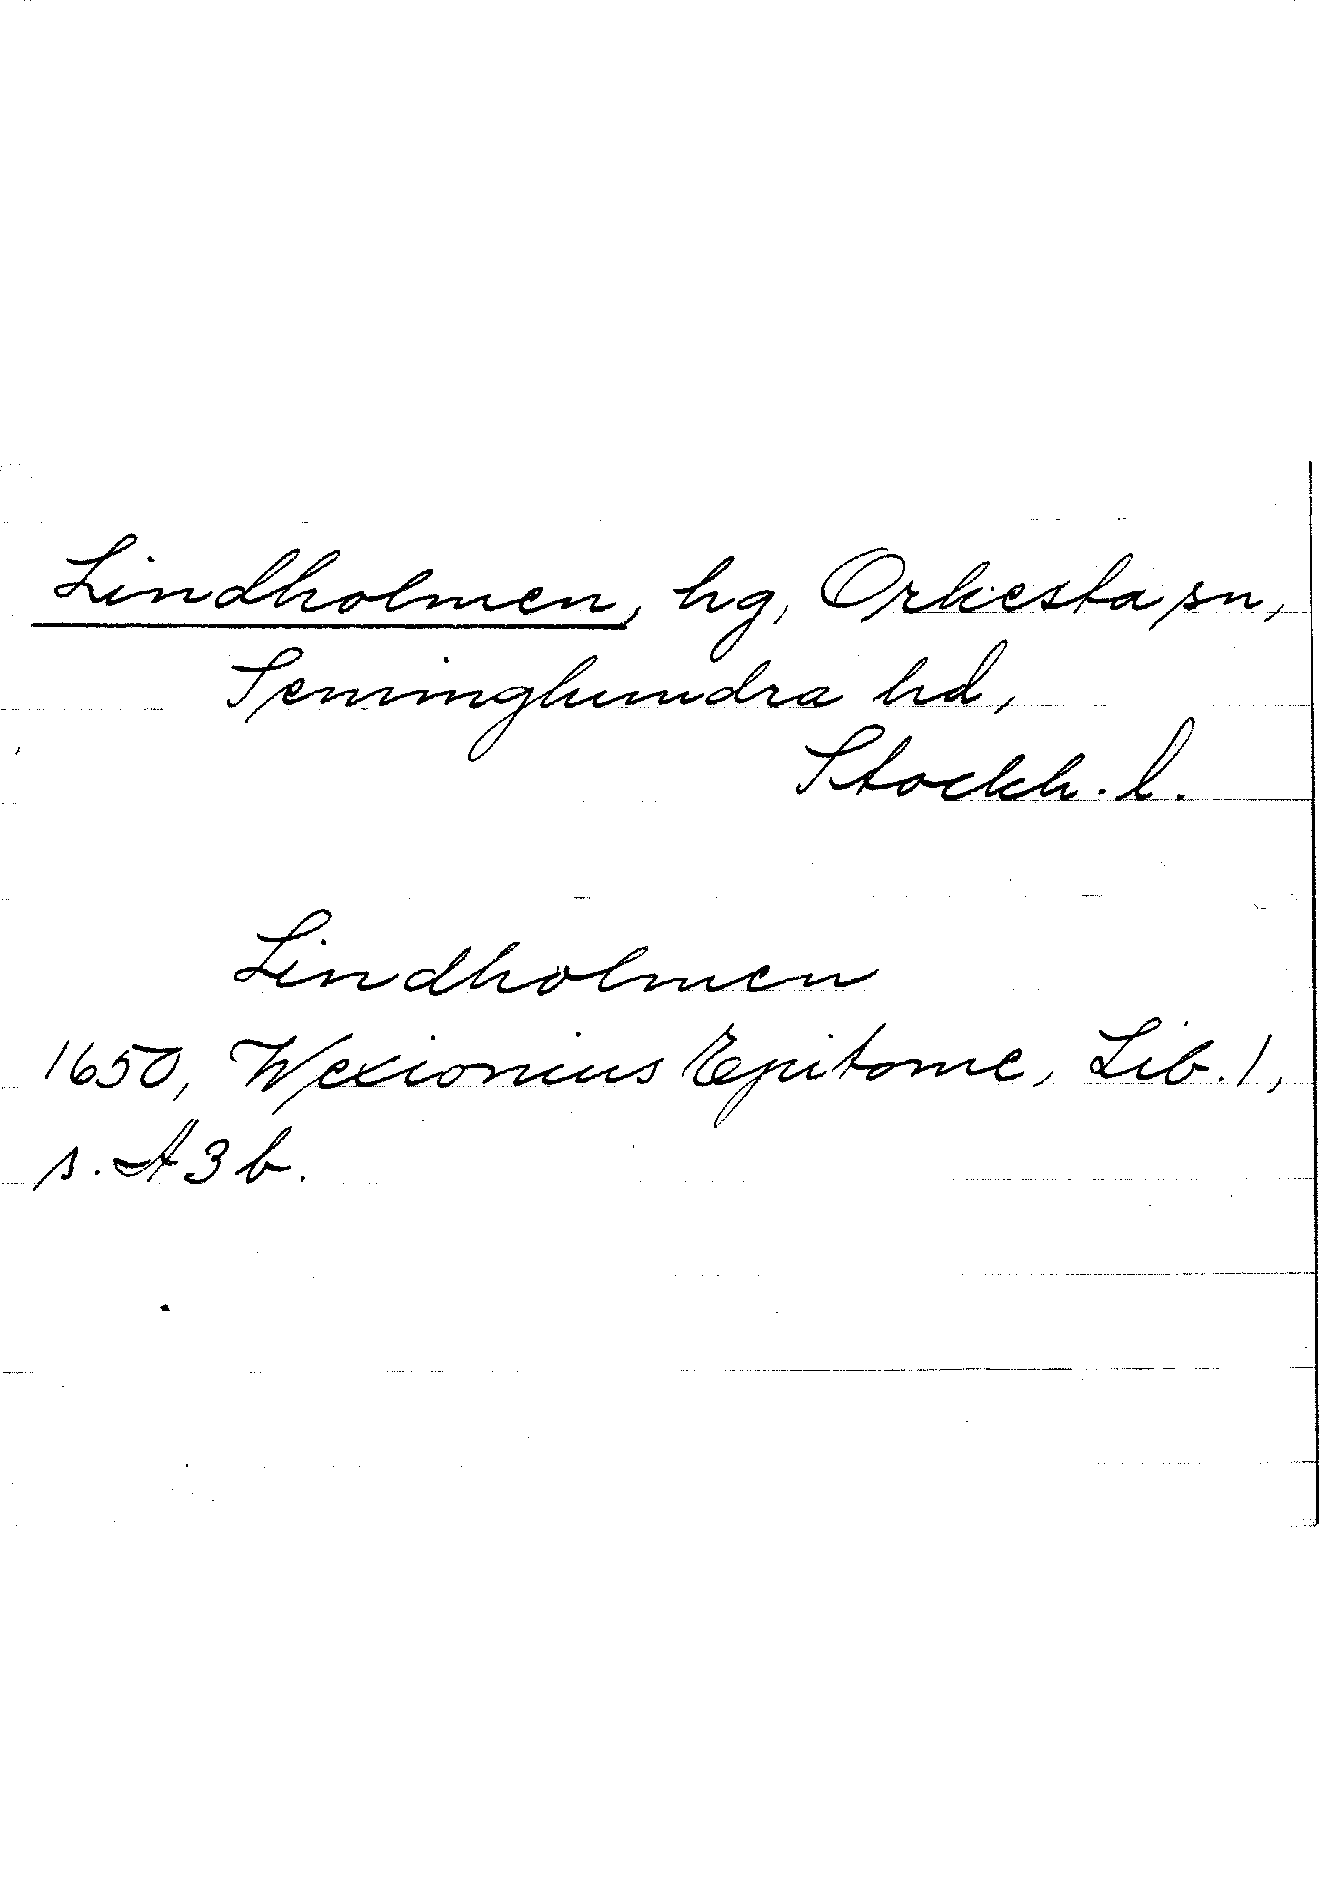 Lindholmen, hg, Orkesta sn,
Seminghundra hd,
Stockh. l.
Lindholmen
1650, Wexionius Epitome, Lib. 1,
s. A 3 b.